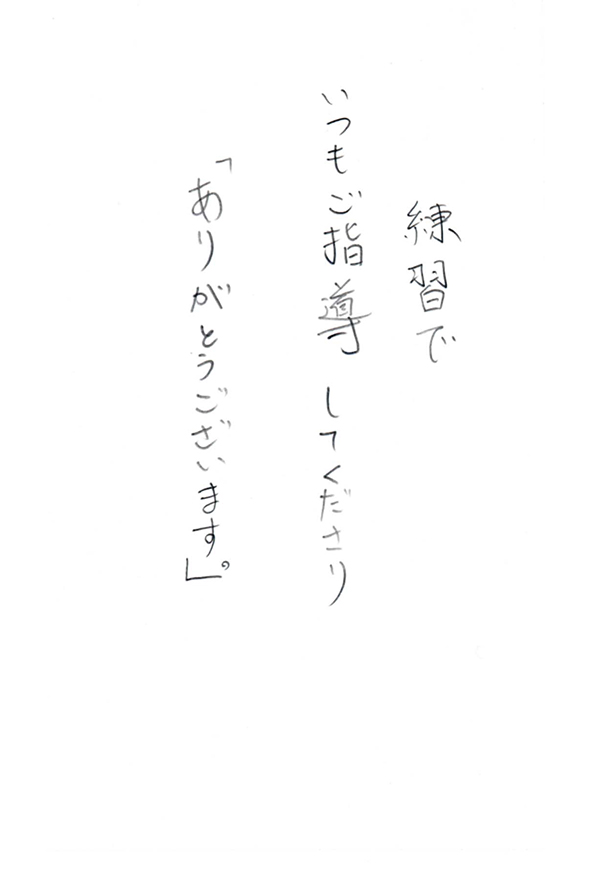 練習で
いつもご指導してくださり
「ありがとうございます」。